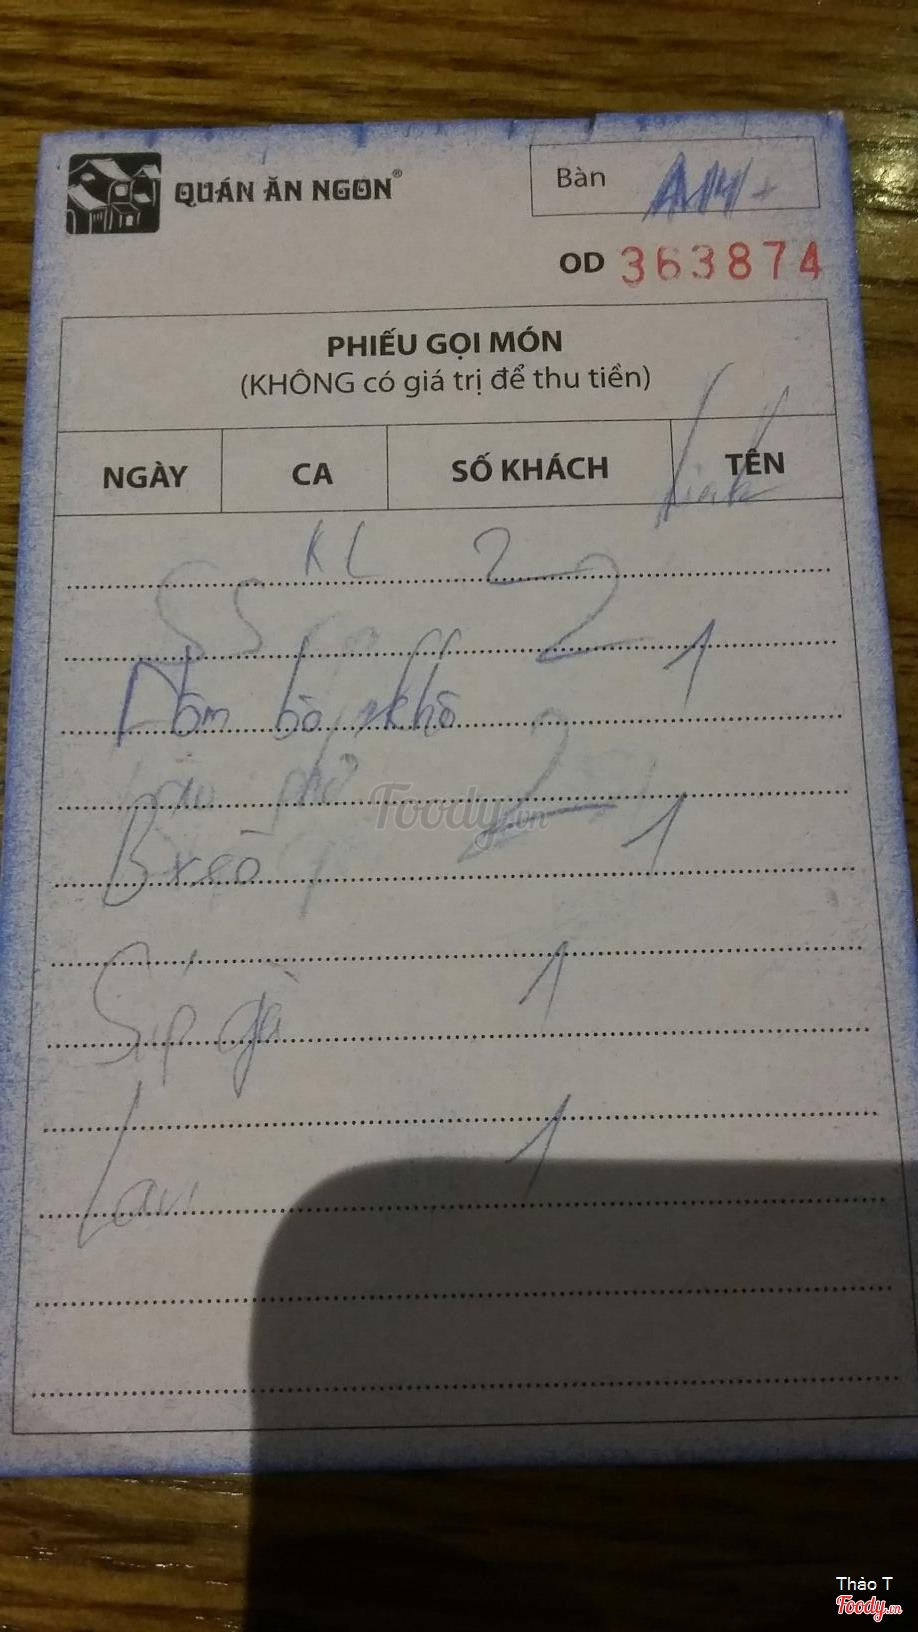 QUÁN ĂN NGON®
Bàn A14
OD 363874
PHIẾU GỌI MÓN
(KHÔNG có giá trị để thu tiền)
NGÀY CA SỐ KHÁCH TÊN
Linh
KL 2
2
Nộm bò khô 1
phở 2
B xèo 1
Foody.vn
Súp gà 1
Lavi 1
Thảo T
Foody.vn